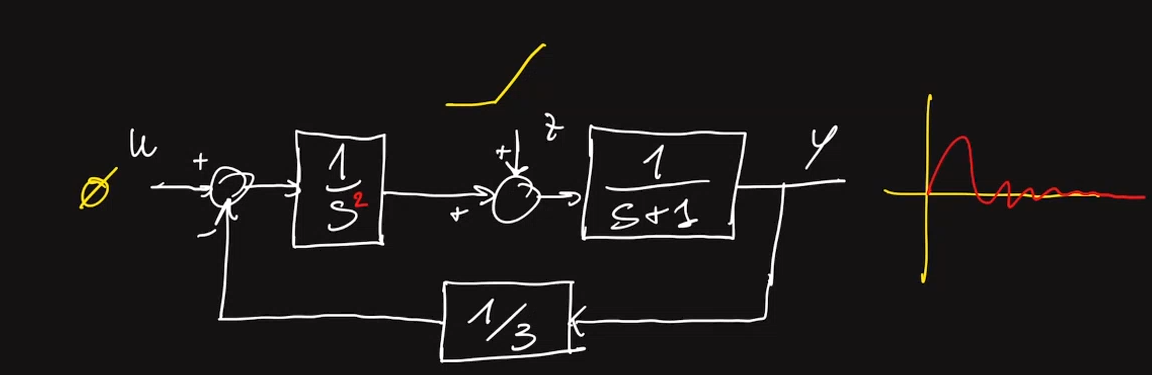 u + 1/s² + + z 1/(s+1) y
−
1/3